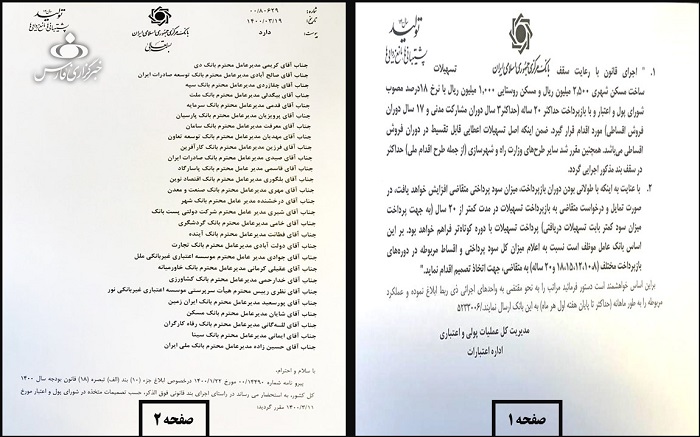 شماره: ۰۰/۸۰۶۲۹
تاریخ: ۱۴۰۰/۰۳/۱۹
پیوست: دارد
بانک مرکزی جمهوری اسلامی ایران
بسمه تعالی
تولید
پشتیبانی‌ها، مانع‌زدایی‌ها
خبرگزاری فارس
جناب آقای کریمی مدیرعامل محترم بانک دی
جناب آقای صالح آبادی مدیرعامل محترم بانک توسعه صادرات ایران
جناب آقای چقازردی مدیرعامل محترم بانک سپه
جناب آقای بیگدلی مدیرعامل محترم بانک ملت
جناب آقای قدمی مدیرعامل محترم بانک سرمایه
جناب آقای پرویزیان مدیرعامل محترم بانک پارسیان
جناب آقای معرفت مدیرعامل محترم بانک سامان
جناب آقای مهدیان مدیرعامل محترم بانک توسعه تعاون
جناب آقای فرزین مدیرعامل محترم بانک کارآفرین
جناب آقای صیدی مدیرعامل محترم بانک صادرات ایران
جناب آقای قاسمی مدیرعامل محترم بانک پاسارگاد
جناب آقای بلگوری مدیرعامل محترم بانک اقتصاد نوین
جناب آقای مهری مدیرعامل محترم بانک صنعت و معدن
جناب آقای درخشنده مدیر عامل محترم بانک شهر
جناب آقای شیری مدیر عامل محترم شرکت دولتی پست بانک
جناب آقای خامی مدیرعامل محترم بانک گردشگری
جناب آقای فطانت مدیرعامل محترم بانک آینده
جناب آقای دولت آبادی مدیرعامل محترم بانک تجارت
جناب آقای جوادی مدیر عامل محترم موسسه اعتباری غیربانکی ملل
جناب آقای عقیلی کرمانی مدیرعامل محترم بانک خاورمیانه
جناب آقای خدارحمی مدیرعامل محترم بانک کشاورزی
جناب آقای نظری رییس محترم هیأت سرپرستی موسسه اعتباری غیربانکی نور
جناب آقای پورسعید مدیرعامل محترم بانک ایران زمین
جناب آقای شایان مدیرعامل محترم بانک مسکن
جناب آقای لله‌گانی مدیرعامل محترم بانک رفاه کارگران
جناب آقای ایمانی مدیرعامل محترم بانک سینا
جناب آقای حسین زاده مدیرعامل محترم بانک ملی ایران
با سلام و احترام،
پیرو نامه شماره ۰۰/۱۴۲۹۰ مورخ ۱۴۰۰/۱/۲۲ درخصوص ابلاغ جزء (۱۰) بند (الف) تبصره (۱۸) قانون بودجه سال ۱۴۰۰
کل کشور، به استحضار می رساند در راستای اجرای بند قانونی فوق الذکر، حسب تصمیمات متخذه در شورای پول و اعتبار مورخ
۱۴۰۰/۳/۱۱ مقرر گردید:
صفحه ۲
تولید
پشتیبانی‌ها، مانع‌زدایی‌ها
بانک مرکزی جمهوری اسلامی ایران
۱. " اجرای قانون با رعایت سقف تسهیلات
ساخت مسکن شهری ۲,۵۰۰ میلیون ریال و مسکن روستایی ۱,۰۰۰ میلیون ریال با نرخ ۱۸درصد مصوب
شورای پول و اعتبار و با بازپرداخت حداکثر ۲۰ ساله (حداکثر ۳ سال دوران مشارکت مدنی و ۱۷ سال دوران
فروش اقساطی) مورد اقدام قرار گیرد. ضمن اینکه اصل تسهیلات اعطایی قابل تقسیط در دوران فروش
اقساطی می‌باشد. همچنین مقرر شد سایر طرح‌های وزارت راه و شهرسازی (از جمله طرح اقدام ملی) حداکثر
در سقف بند مذکور اجرایی گردد.
۲. با عنایت به اینکه با طولانی بودن دوران بازپرداخت، میزان سود پرداختی متقاضی افزایش خواهد یافت، در
صورت تمایل و درخواست متقاضی به بازپرداخت تسهیلات در مدت کمتر از ۲۰ سال (به جهت پرداخت
میزان سود کمتر بابت تسهیلات دریافتی) پرداخت تسهیلات با دوره کوتاه‌تر فراهم خواهد بود. بر این
اساس بانک عامل موظف است نسبت به اعلام میزان کل سود پرداختی و اقساط مربوطه در دوره‌های
بازپرداخت مختلف (۸، ۱۰، ۱۲، ۱۵، ۱۸ و ۲۰ ساله) به متقاضی، جهت اتخاذ تصمیم اقدام نمایند."
براین اساس خواهشمند است دستور فرمائید مراتب را به نحو مقتضی به واحدهای اجرائی ذی ربط ابلاغ نموده و عملکرد
مربوطه را به طور ماهانه (حداکثر تا پایان هفته اول هر ماه) به این بانک ارسال نمایند./۵۲۳۳۰۰۶
مدیریت کل عملیات پولی و اعتباری
اداره اعتبارات
صفحه ۱